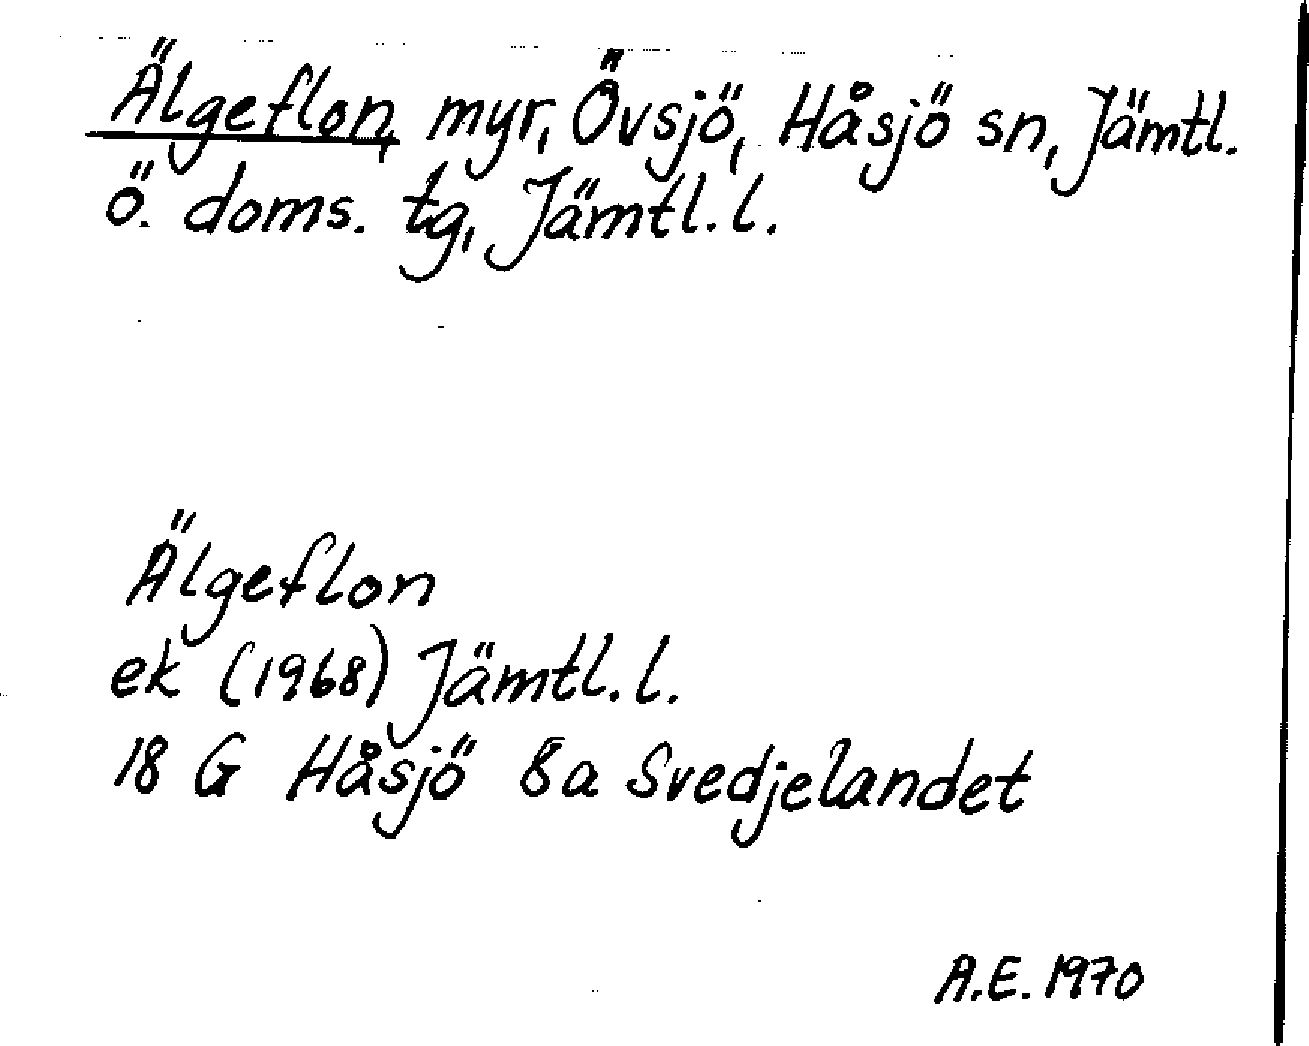 Älgeflon, myr, Övsjö, Håsjö sn, Jämtl.
ö. doms. tg, Jämtl. l.
Älgeflon
ek (1968) Jämtl. l.
18 G Håsjö 8a Svedjelandet
A.E. 1970